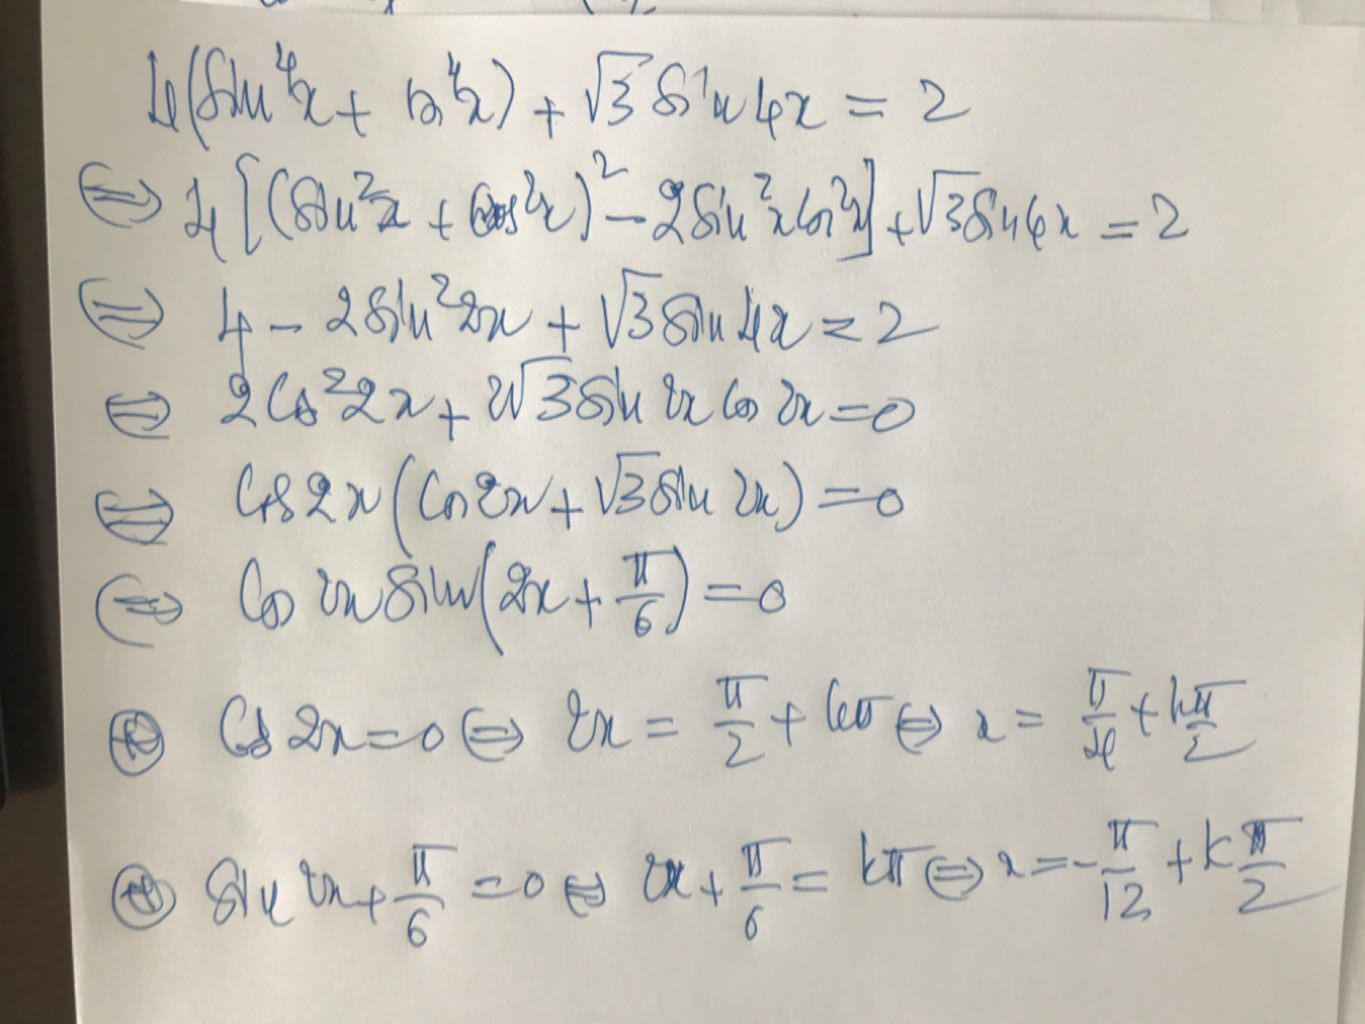 4(sin⁴x + cos⁴x) + √3 sin4x = 2
⇔ 4[(sin²x + cos²x)² - 2sin²x cos²x] + √3 sin4x = 2
⇔ 4 - 2sin²2x + √3 sin4x = 2
⇔ 2cos²2x + 2√3 sin2x cos2x = 0
⇔ cos2x(cos2x + √3 sin2x) = 0
⇔ cos2x sin(2x + π/6) = 0
⊕ cos2x = 0 ⇔ 2x = π/2 + kπ ⇔ x = π/4 + kπ/2
⊕ sin 2x + π/6 = 0 ⇔ 2x + π/6 = kπ ⇔ x = -π/12 + k π/2